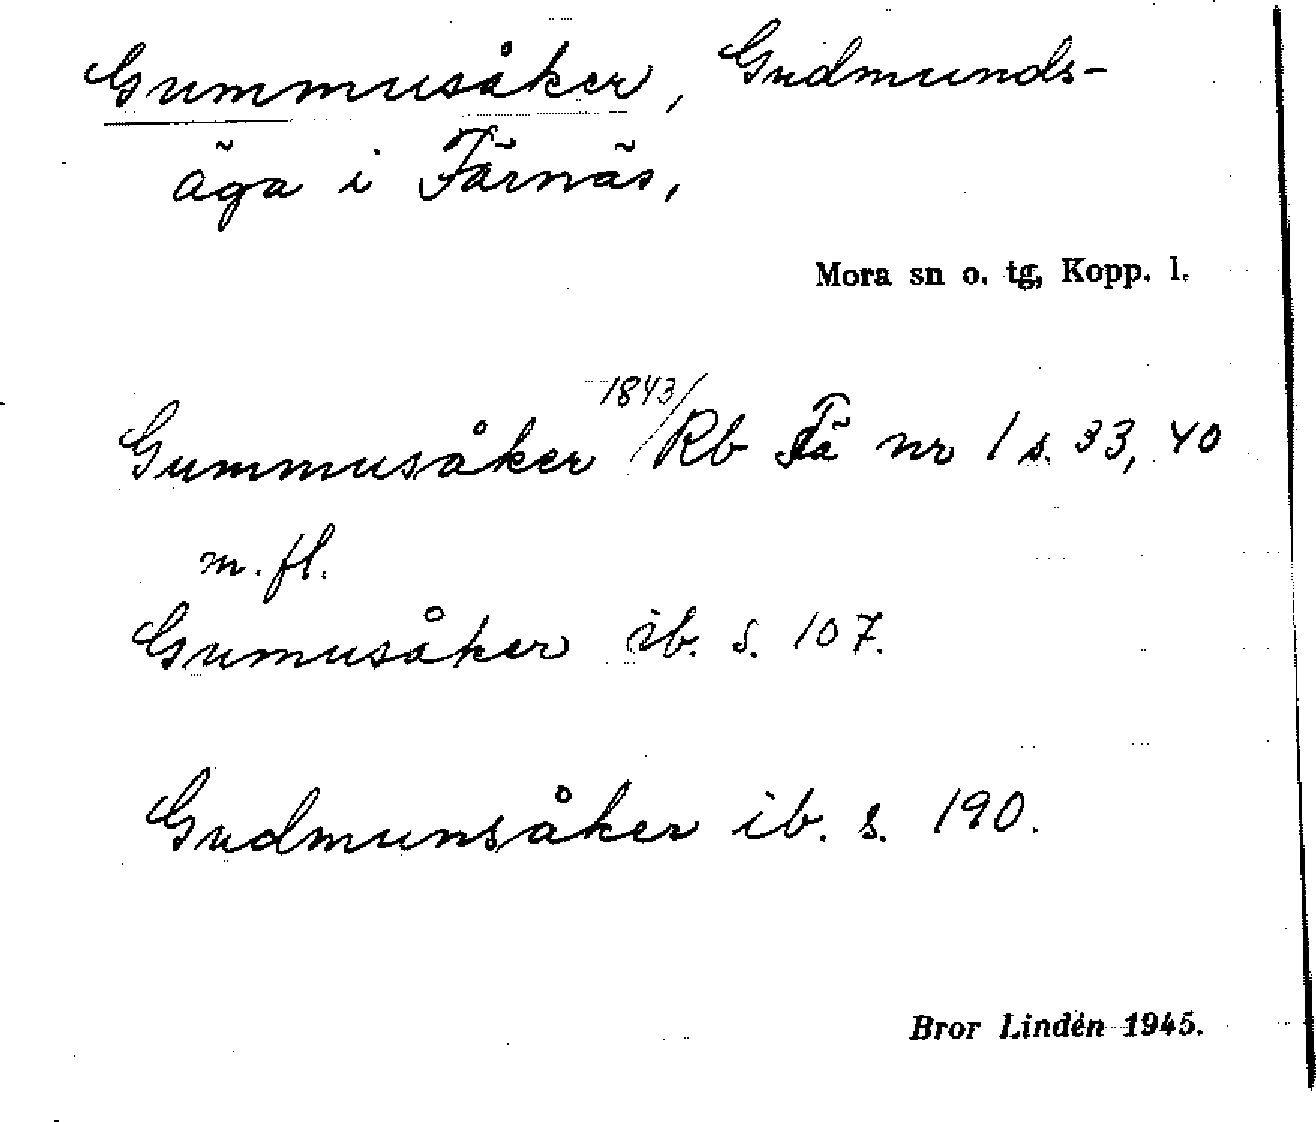 Gummusåker, Gudmunds-
äga i Färnäs,
Mora sn o. tg, Kopp. l.
1843/
Gummusåker Rb Fä nr 1 s. 33, 40
m. fl.
Gumusåker ib. s. 107.
Gudmunsåker ib. s. 190.
Bror Lindén 1945.